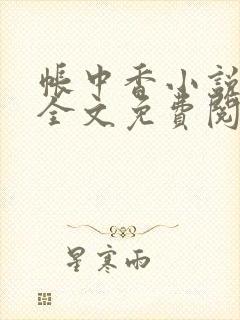 帳中香小說
全文免費閱
星寒雨